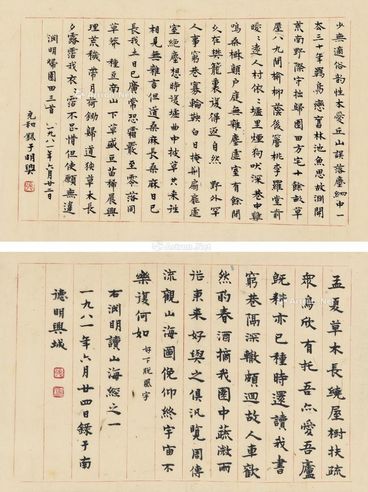 少無適俗韵性本愛丘山誤落塵網中一
去三十年羈鳥戀舊林池魚思故淵開
荒南野際守拙歸園田方宅十餘畝草
屋八九間榆柳蔭後簷桃李羅堂前
曖〻遠人村依〻墟里烟狗吠深巷中雞
鳴桑樹顛户庭無雜塵虛室有餘閒
久在樊籠裏復得返自然 野外罕
人事窮巷寡輪鞅白日掩荆扉虛
室絕塵想時復墟曲中披草共來往
相見無雜言但道桑麻長桑麻日已
長我土日已廣常恐霜霰至零落同
草莽 種豆南山下草盛豆苗稀晨興
理荒穢帶月荷鋤歸道狹草木長
夕露霑我衣〻霑不足惜但使願無違
淵明歸園田三首 一九八一年六月廿三日
充和錄于明興
孟夏草木長繞屋樹扶疏
衆鳥欣有托吾亦愛吾廬
既耕亦已種時還讀我書
窮巷隔深轍頗迴故人車歡
然酌春酒摘我園中蔬微雨
從東來好與之俱汎覽周傳
流觀山海圖俛仰終宇宙不
樂復何如 好下脱風字
右淵明讀山海經之一
一九八一年六月廿四日錄于南
德明興城